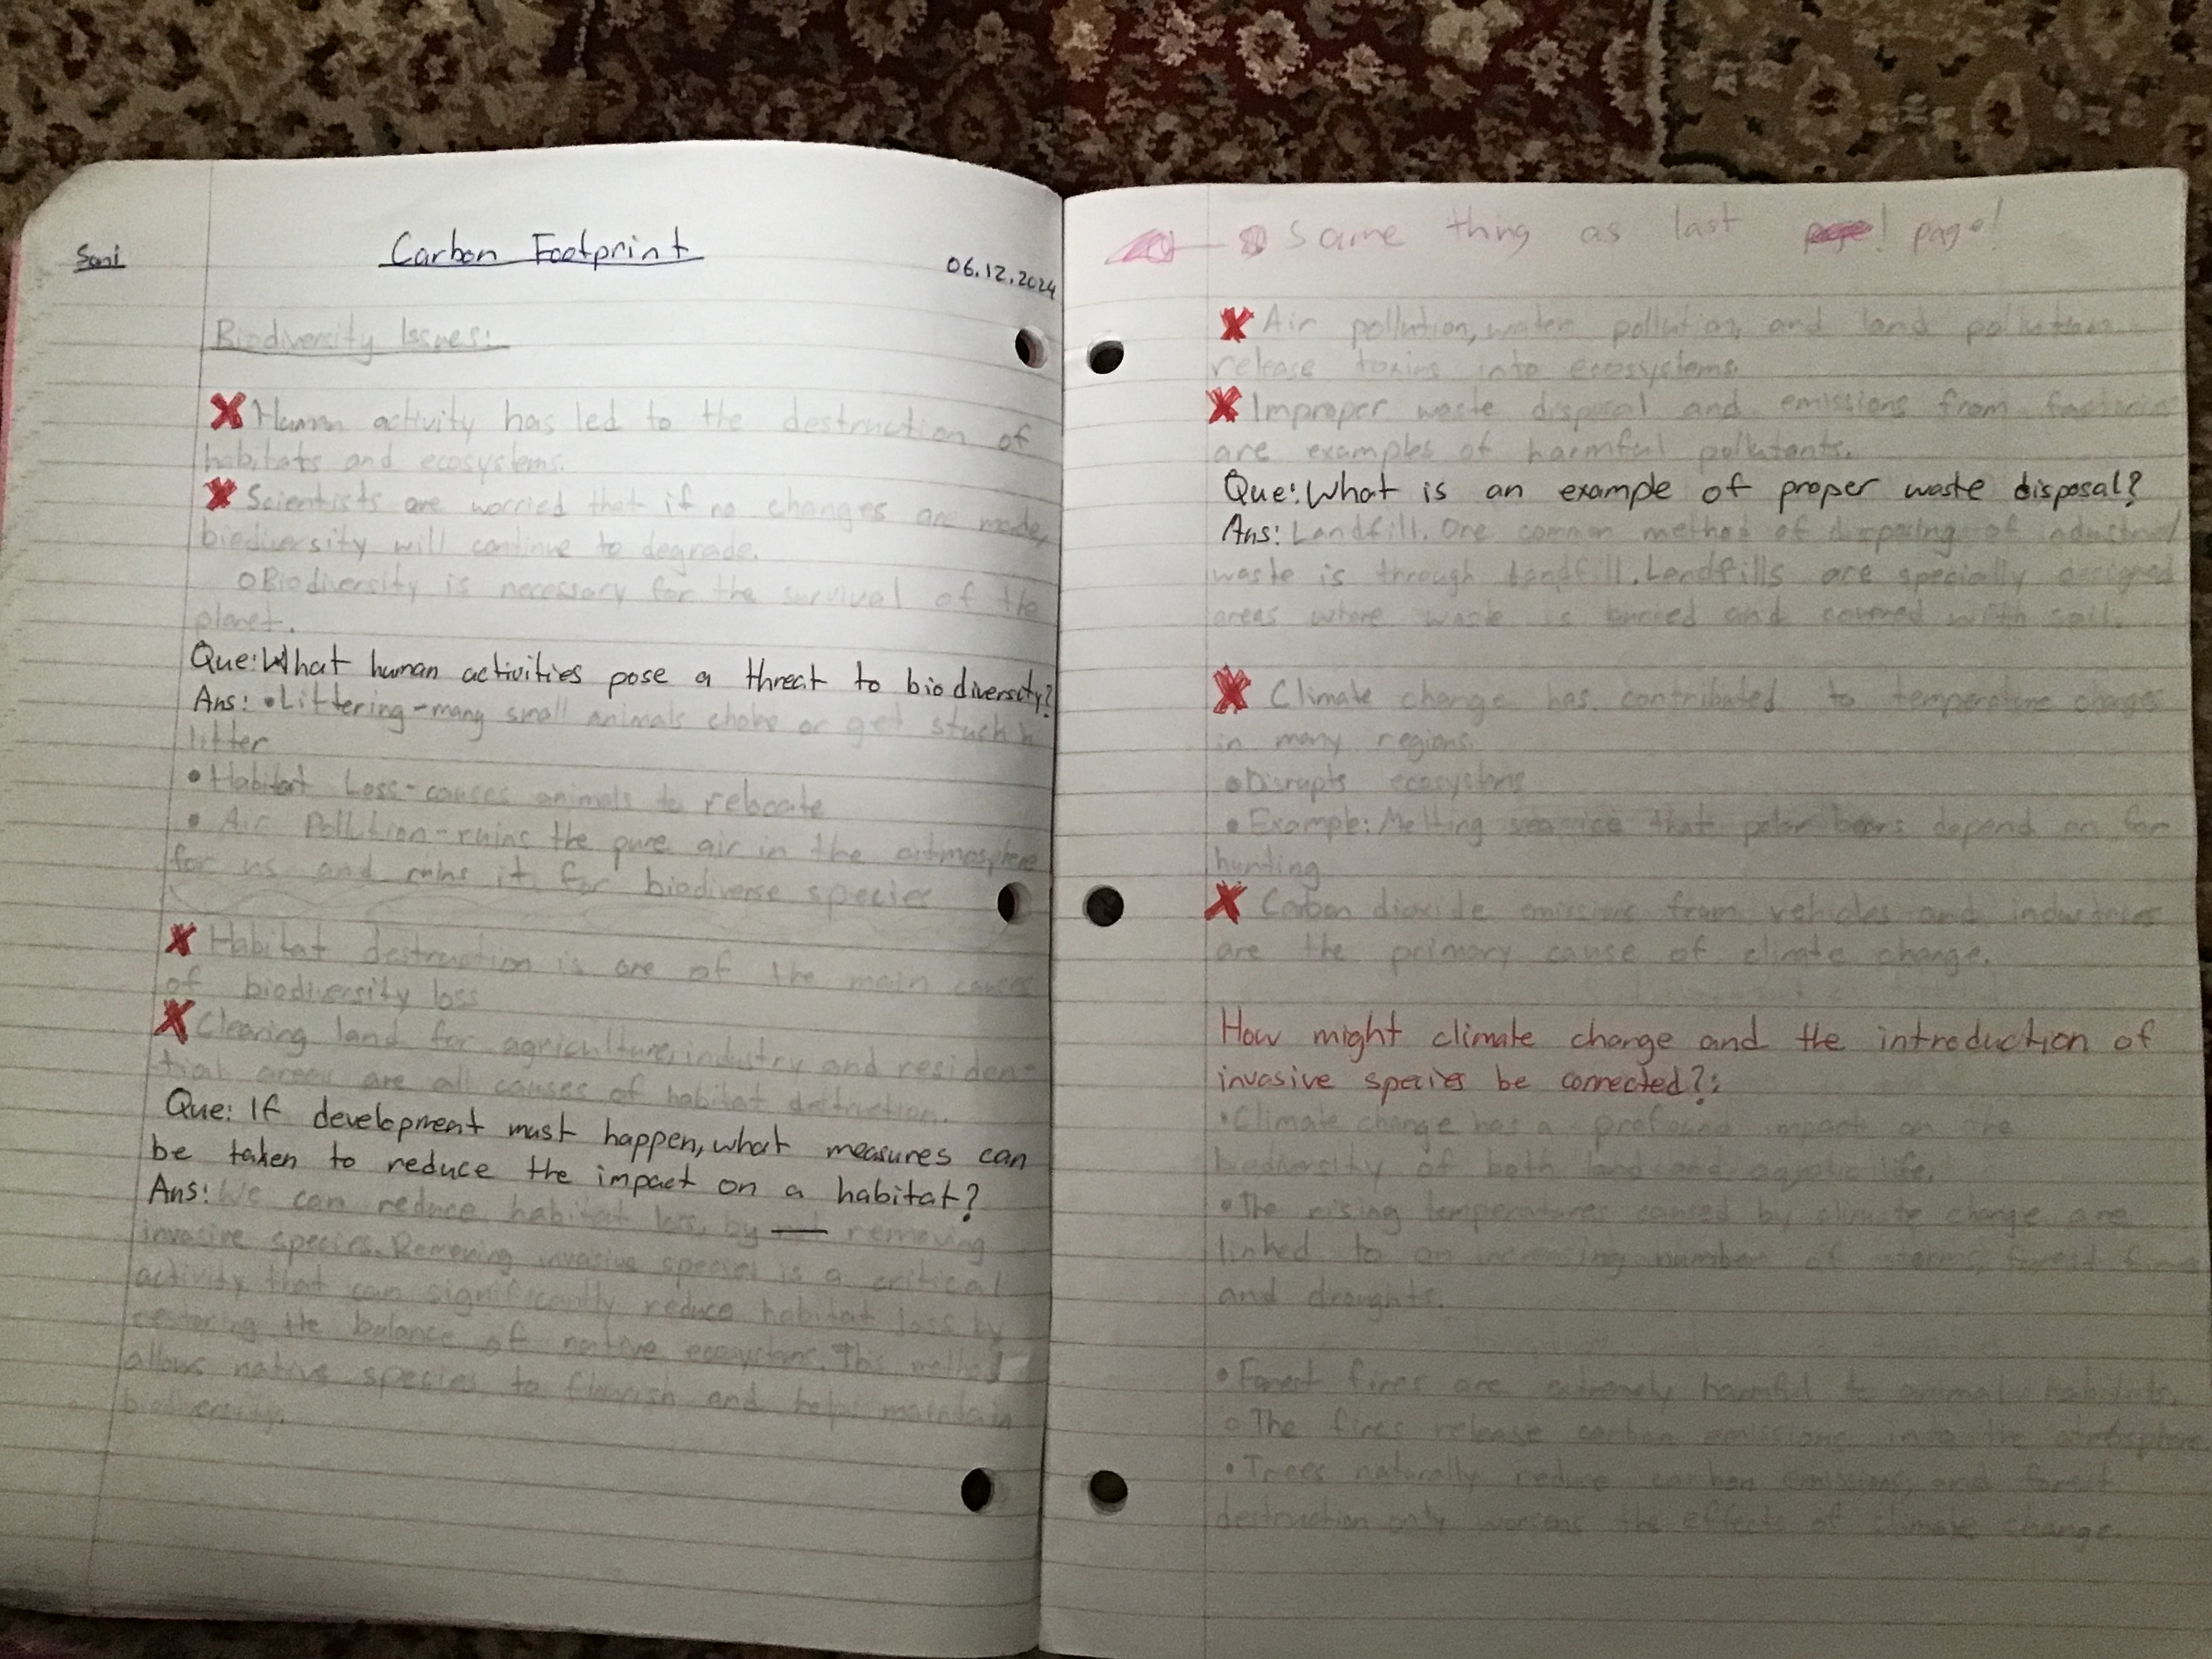 Sani
Carbon Footprint
06.12.2024
Biodiversity Issues:
Human activity has led to the destruction of
habitats and ecosystems.
Scientists are worried that if no changes are made,
biodiversity will continue to degrade.
Biodiversity is necessary for the survival of the
planet.
Que: What human activities pose a threat to biodiversity?
Ans: • Littering - many small animals choke or get stuck in
litter
• Habitat Loss - causes animals to relocate
• Air Pollution - ruins the pure air in the atmosphere
for us and ruins it for biodiverse species
Habitat destruction is one of the main causes
of biodiversity loss
Clearing land for agriculture, industry and residen-
tial areas are all causes of habitat destruction.
Que: If development must happen, what measures can
be taken to reduce the impact on a habitat?
Ans: We can reduce habitat loss, by removing
invasive species. Removing invasive species is a critical
activity that can significantly reduce habitat loss by
restoring the balance of native ecosystems. This method
allows native species to flourish and helps maintain
biodiversity.
Same thing as last page! page!
Air pollution, water pollution, and land pollution
release toxins into ecosystems.
Improper waste disposal and emissions from factories
are examples of harmful pollutants.
Que: What is an example of proper waste disposal?
Ans: Landfill. One common method of disposing of industrial
waste is through landfill. Landfills are specially designed
areas where waste is buried and covered with soil.
Climate change has contributed to temperature changes
in many regions.
• Disrupts ecosystems
• Example: Melting sea ice that polar bears depend on for
hunting
Carbon dioxide emissions from vehicles and industries
are the primary cause of climate change.
How might climate change and the introduction of
invasive species be connected?:
• Climate change has a profound impact on the
biodiversity of both land and aquatic life.
• The rising temperatures caused by climate change are
linked to an increasing number of storms, forest fires
and droughts.
• Forest fires are extremely harmful to animal habitats.
o The fires release carbon emissions into the atmosphere
• Trees naturally reduce carbon emissions, and forest
destruction only worsens the effects of climate change.